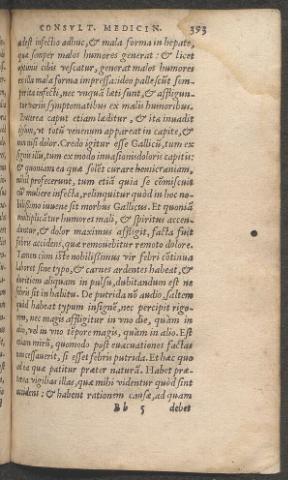 CONSVLT. MEDICIN. 393
adest infectio adhuc, & mala forma in hepate,
quæ semper malos humores generat: & licet
optimis cibis vescatur, generat malos humores
ex illa mala forma impressa: ideo pallescũt sem-
per ita infecti, nec vnquã læti sunt, & affligun-
tur varijs symptomatibus ex malis humoribus.
Præterea caput etiam læditur, & ita inuadit
ipsum, vt totũ venenum appareat in capite, &
non nisi dolor. Credo igitur esse Gallicũ, tum ex
signis illis, tum ex modo inuasionis doloris capitis:
& quoniam ea quæ solẽt curare hemicraniam,
nihil profecerunt, tum etiã quia se cõmiscuit
cũ muliere infecta, relinquitur quòd in hoc no-
bilissimo iuuene sit morbus Gallicus. Et quoniã
multiplicãtur humores mali, & spiritus accen-
duntur, & dolor maximus affligit, facta fuit
febris accidens, quæ remouebitur remoto dolore.
Tamen cùm iste nobilissimus vir febri cõtinua
laboret sine typo, & carnes ardentes habeat, &
duritiem aliquam in pulsu, dubitandum est ne
febris sit in habitu. De putrida nõ audio, saltem
quòd habeat typum insignẽ, nec percipit rigo-
rem, nec magis affligitur in vno die, quàm in
alio, vel in vno tẽpore magis, quàm in alio. Est
etiam mirũ, quomodo post euacuationes factas
nõ cessauerit, si esset febris putrida. Et hæc quo
ad ea quæ patitur præter naturã. Habet præ-
terea vigilias illas, quæ mihi videntur quòd sint
accidens: & habent rationem causæ, ad quam
Bb 5 debet